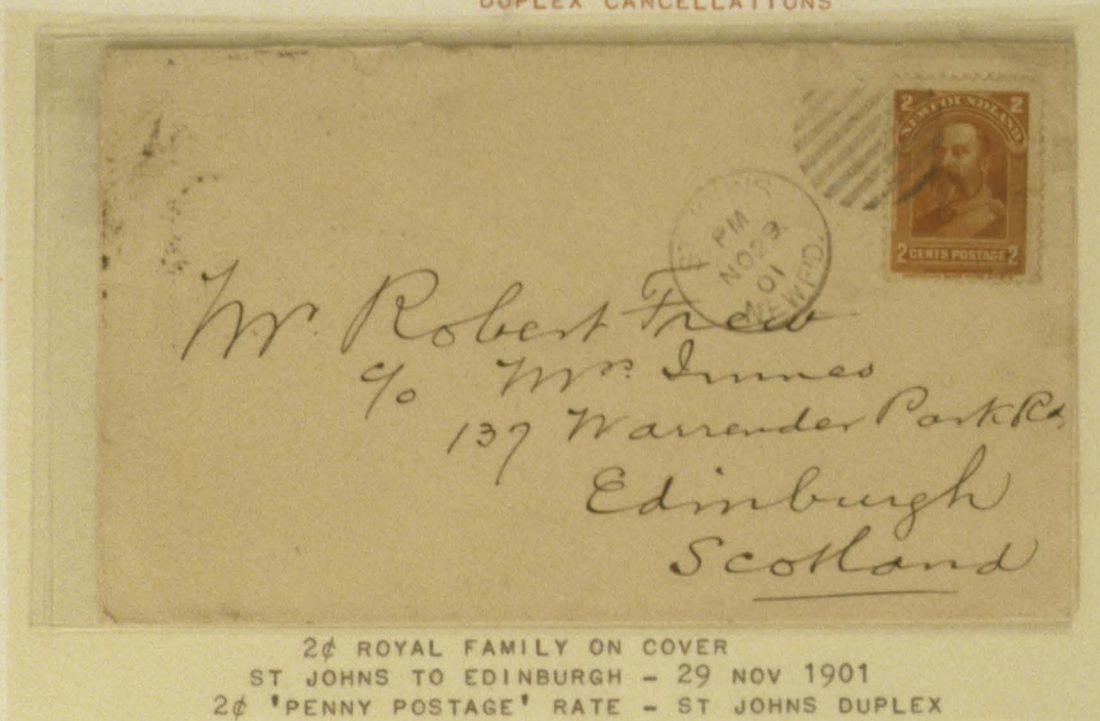 DUPLEX CANCELLATIONS
2 NEWFOUNDLAND 2
2 CENTS POSTAGE 2
PM
NO 29
01
NEWF'D.
Mr. Robert Frew
c/o Mrs. Innes
137 Warrender Park Rd.
Edinburgh
Scotland
2¢ ROYAL FAMILY ON COVER
ST JOHNS TO EDINBURGH - 29 NOV 1901
2¢ 'PENNY POSTAGE' RATE - ST JOHNS DUPLEX